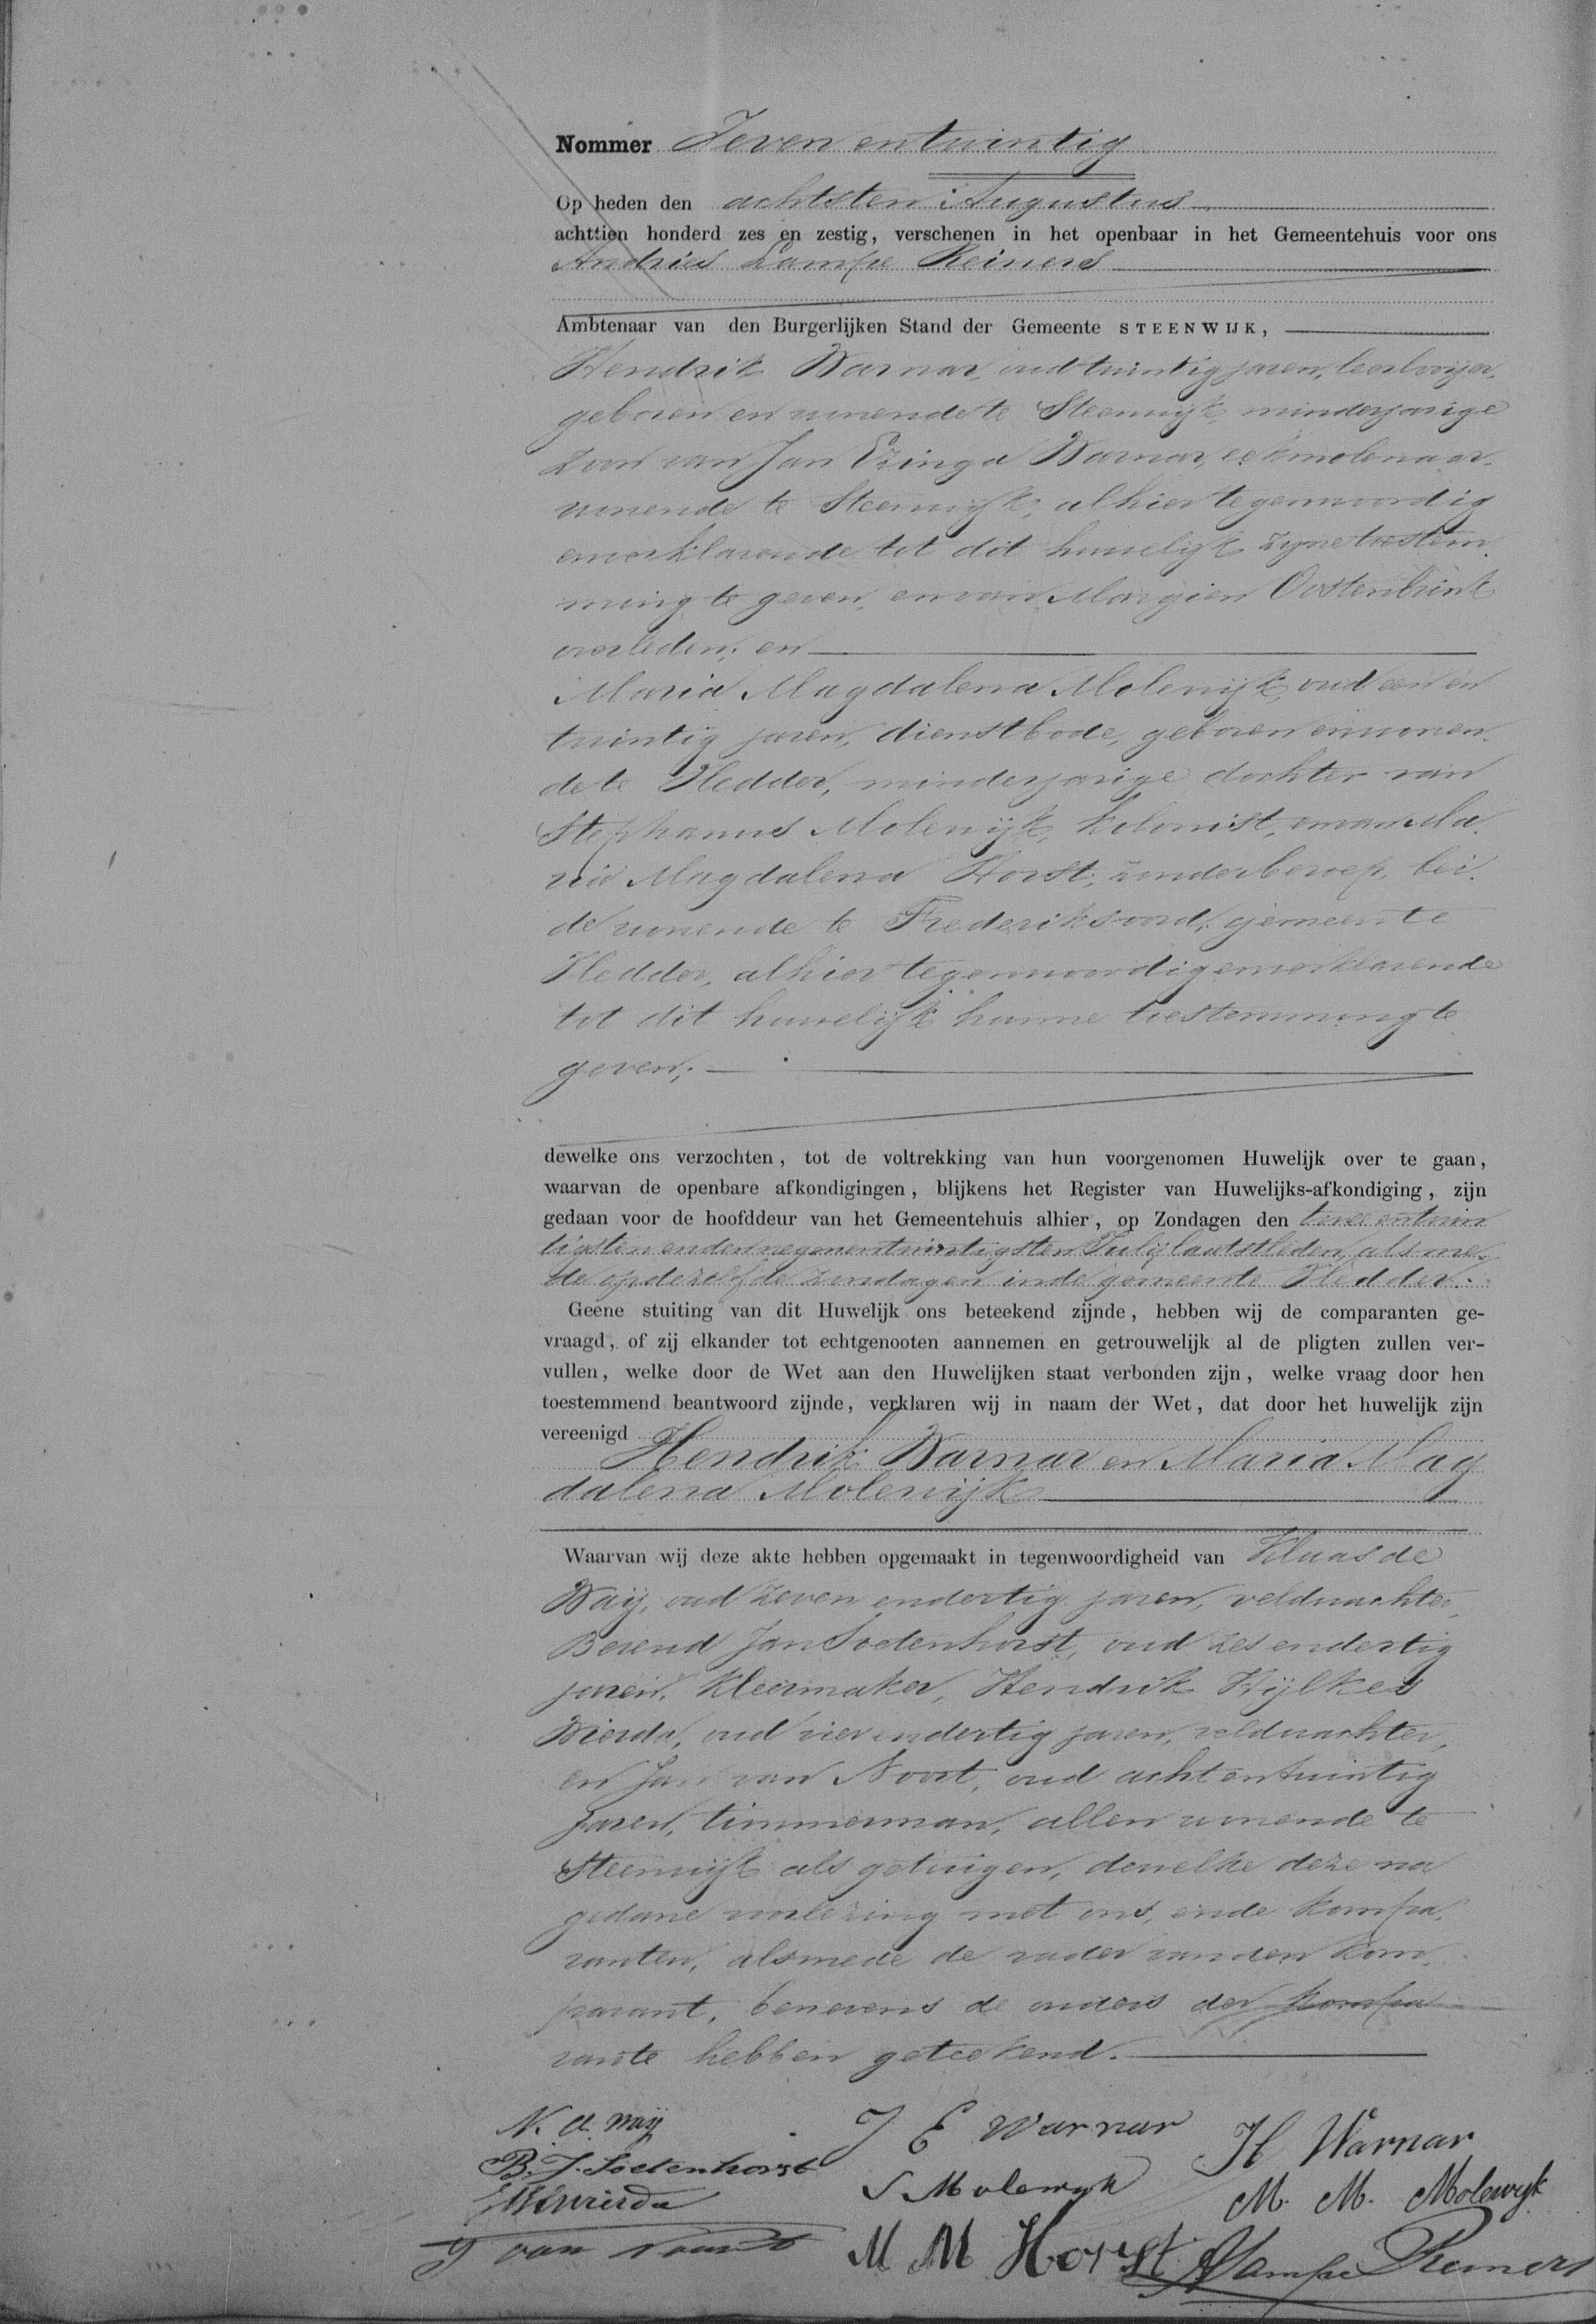 Nommer Zeven en twintig
Op heden den achtsten Augustus
achttien honderd zes en zestig, verschenen in het openbaar in het Gemeentehuis voor ons
Andries Lampe Reiners
Ambtenaar van den Burgerlijken Stand der Gemeente STEENWIJK,
Hendrik Warnar, oud twintig jaren, leerlooijer,
geboren en wonende te Steenwijk, minderjarige
zoon van Jan Ezinga Warnar, eekmolenaar,
wonende te Steenwijk, alhier tegenwoordig
en verklarende tot dit huwelijk zijne toestem
ming te geven, en van Margien Oostenbrink
overleden; en
Maria Magdalena Molewijk, oud een en
twintig jaren, dienstbode, geboren en wonen
de te Vledder, minderjarige dochter van
Stephanus Molewijk, kolonist, en van Ma
ria Magdalena Horst, zonder beroep, bei
de wonende te Frederiksoord, gemeente
Vledder, alhier tegenwoordig en verklarende
tot dit huwelijk hunne toestemming te
geven;
dewelke ons verzochten, tot de voltrekking van hun voorgenomen Huwelijk over te gaan,
waarvan de openbare afkondigingen, blijkens het Register van Huwelijks-afkondiging, zijn
gedaan voor de hoofddeur van het Gemeentehuis alhier, op Zondagen den twee en twin
tigsten en den negenentwintigsten Julij laatstleden, als me
de op dezelfde zondagen in de gemeente Vledder.
Geene stuiting van dit Huwelijk ons beteekend zijnde, hebben wij de comparanten ge-
vraagd, of zij elkander tot echtgenooten aannemen en getrouwelijk al de pligten zullen ver-
vullen, welke door de Wet aan den Huwelijken staat verbonden zijn, welke vraag door hen
toestemmend beantwoord zijnde, verklaren wij in naam der Wet, dat door het huwelijk zijn
vereenigd
Hendrik Warnar en Maria Mag
dalena Molewijk
Waarvan wij deze akte hebben opgemaakt in tegenwoordigheid van Klaas de
Waij, oud zeven en dertig jaren, veldwachter,
Berend Jan Soetenhorst, oud zes en dertig
jaren, kleermaker, Hendrik Wijlkes
Wierda, oud vier en dertig jaren, veldwachter,
en Jan van Noort, oud acht en twintig
jaren, timmerman, allen wonende te
Steenwijk als getuigen, dewelke deze na
gedane voorlezing met ons, en de kompa
ranten, alsmede de vader van den kom
parant, benevens de ouders der kompa
rante hebben geteekend.
K. d. Waij
J E Warnar
H Warnar
B. J. Soetenhorst
S Molewyk
M. M. Molewyk
HWWierda
J van Noort
M M Horst
ALampe Reiners